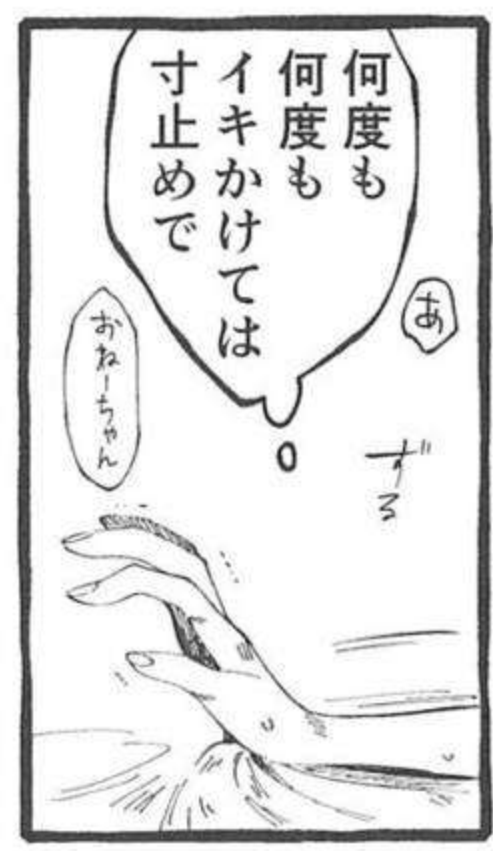 何度も
何度も
イキかけては
寸止めで
あ
ずる
おねーちゃん